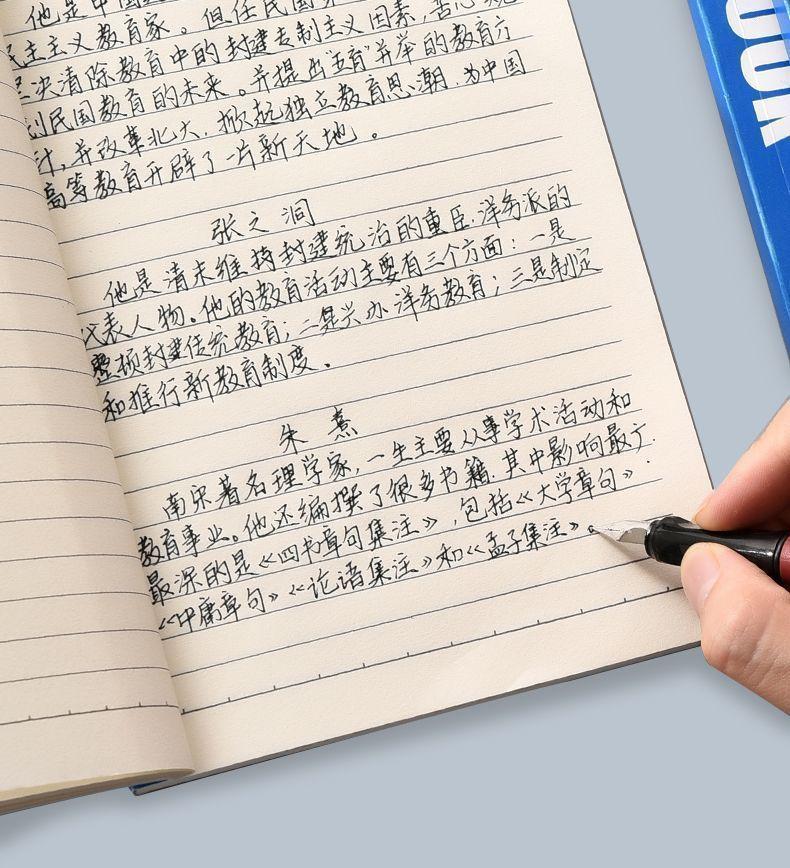 他是中国
民主主义教育家。但任民国
坚决清除教育中的封建专制主义因素,苦心
到民国教育的未来。并提出"五育"并举的教育方
针,并改革北大,掀起独立教育思潮,为中国
高等教育开辟了一片新天地。
张之洞
他是清末维持封建统治的重臣,洋务派的
代表人物。他的教育活动主要有三个方面:一是
整顿封建传统教育;二是兴办洋务教育;三是制定
和推行新教育制度。
朱熹
南宋著名理学家,一生主要从事学术活动和
教育事业。他还编撰了很多书籍.其中影响最广.
最深的是《四书章句集注》,包括《大学章句》.
《中庸章句》《论语集注》和《孟子集注》。
OOK